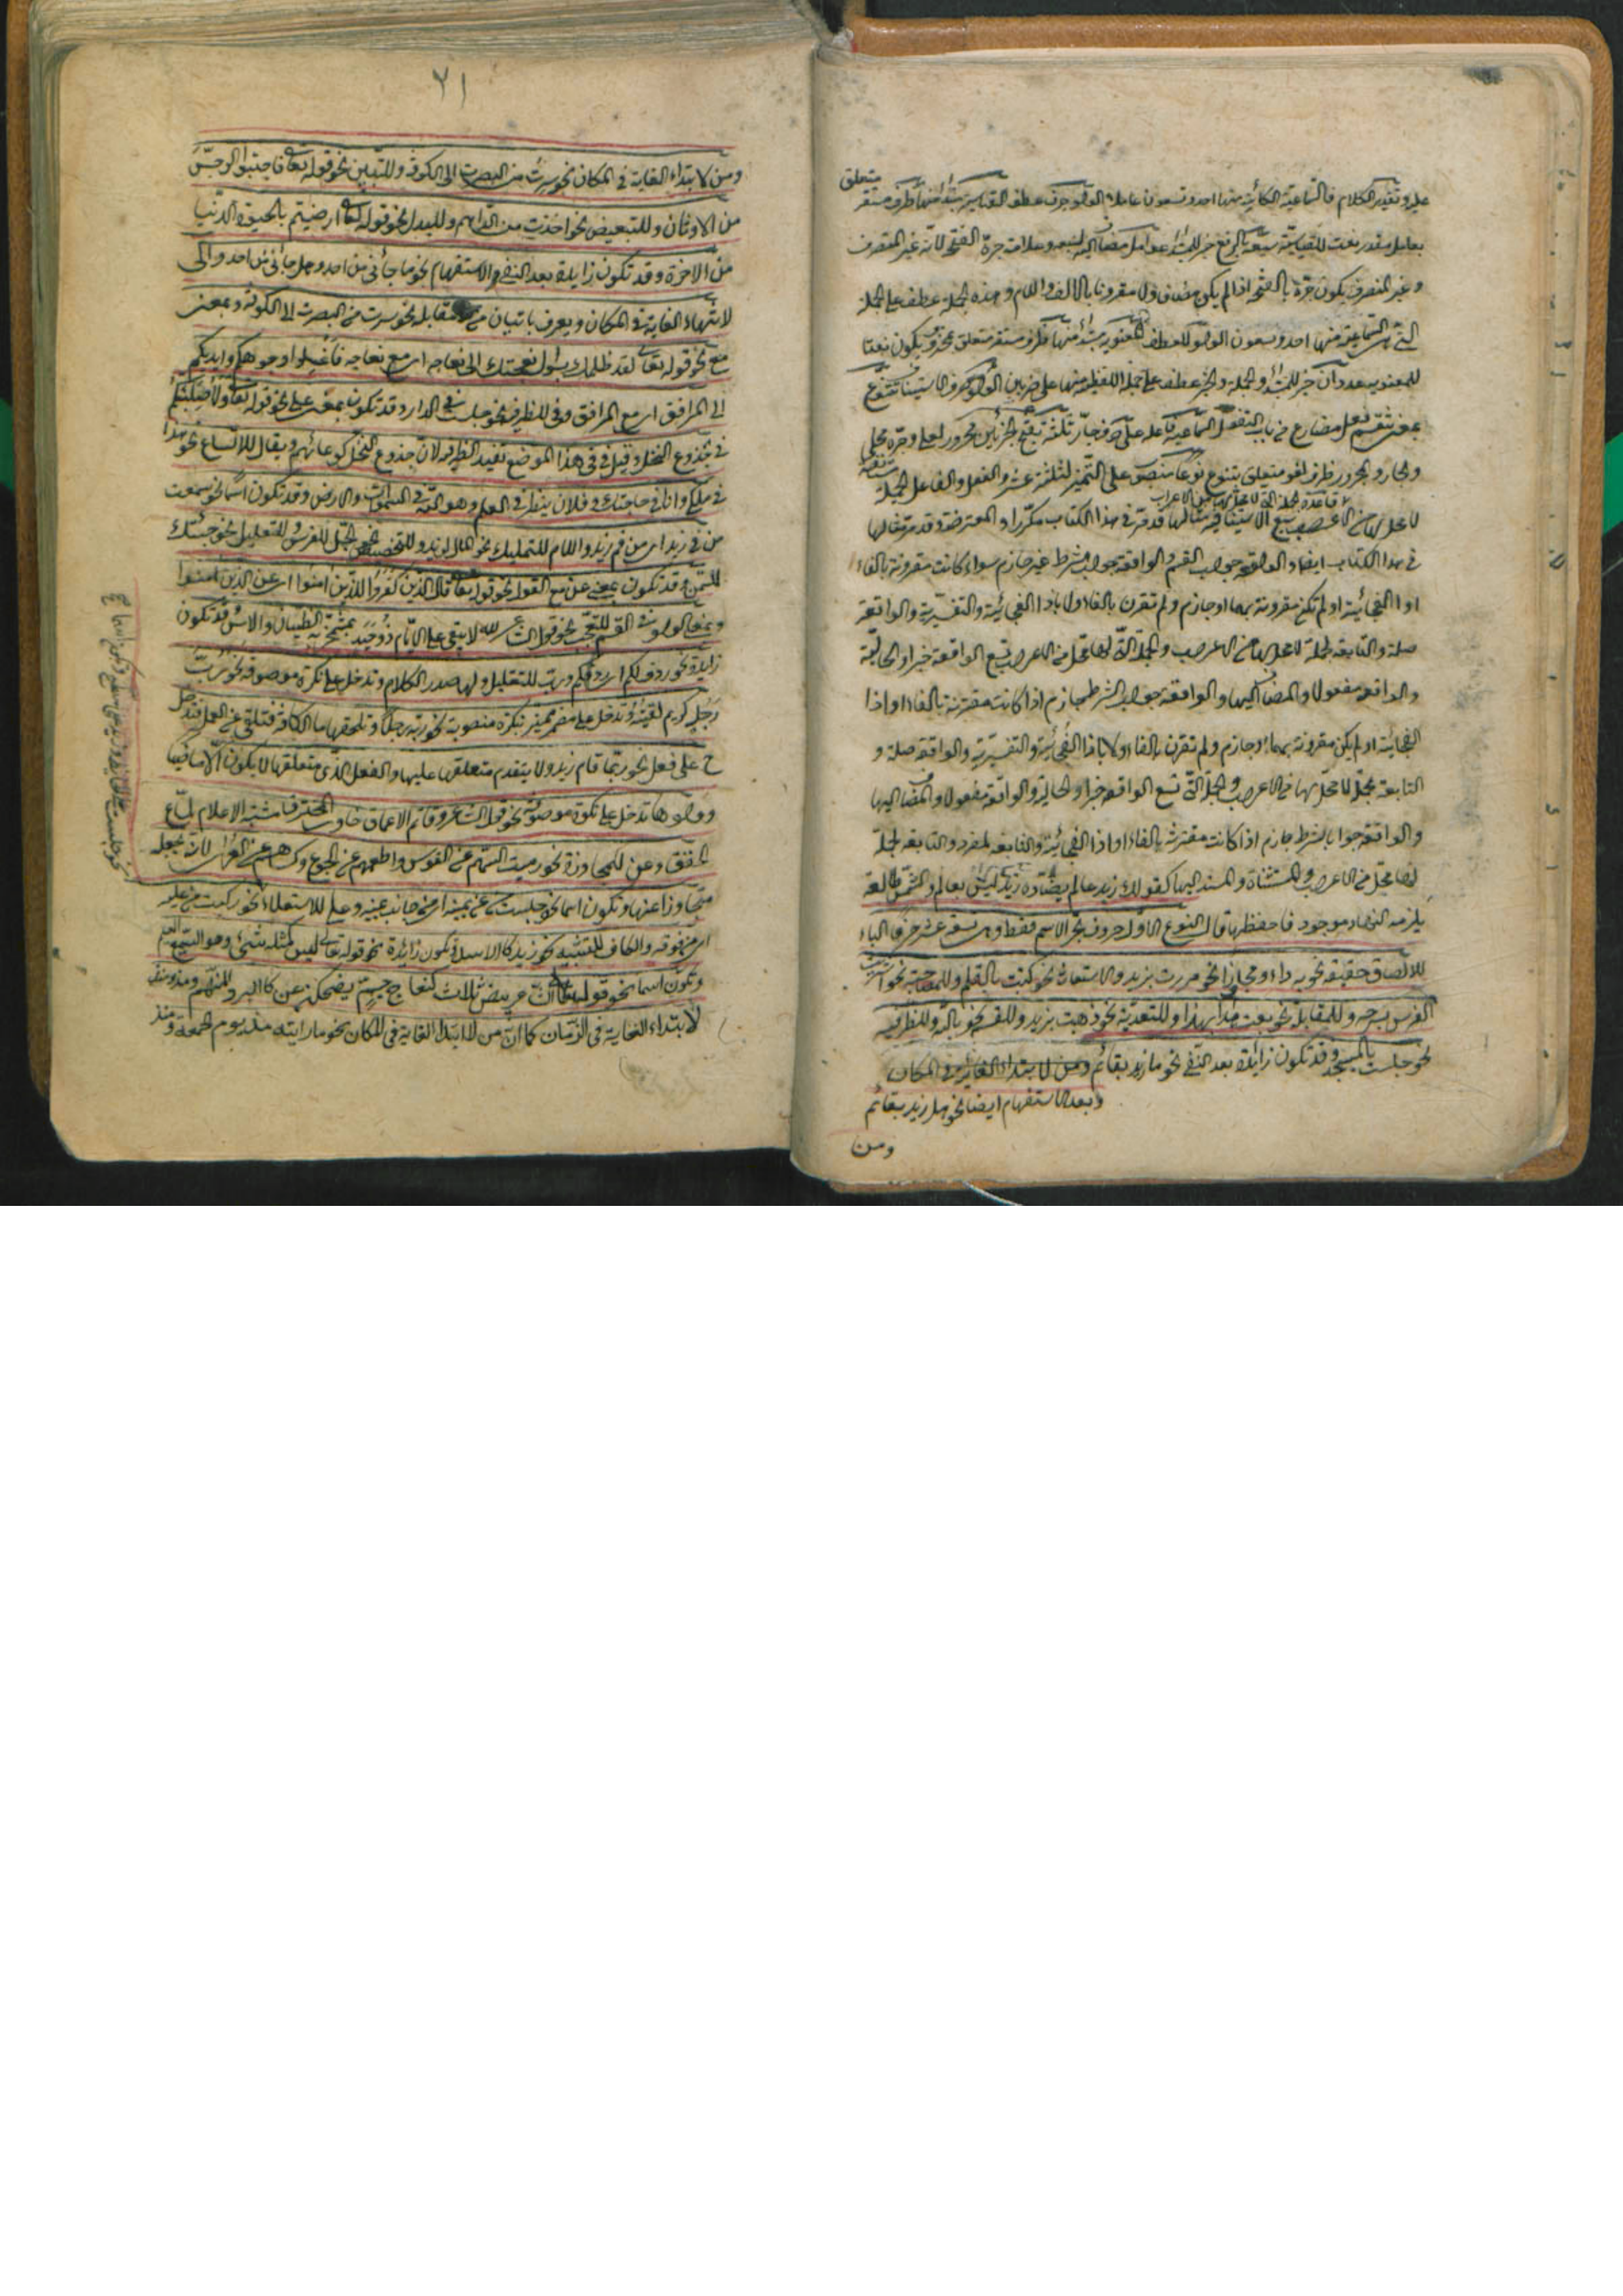 متعلق
عليه وتقدير الكلام فالسماعية الكائنة منها احد وتسعون عاملا والواو حرف عطف القياسية مبتدأ منها ظرف مستقر
بعامل مقدر نعت للقياسية سبعة بالرفع خبر للمبتدأ عوامل مضاف اليه لسبعة وعلامت جره الفتح لانه غير المنصرف
وغير المنصرف يكون جره بالفتحة اذا لم يكن مضاف ولا مقرونا بالالف واللام وهذه الجملة عطف على الجملة
التي السماعية منها احد وتسعون الواو للعطف المعنوية مبتدأ منها ظرف مستقر متعلق بمحذوف يكون نعتا
للمعنوية عددان خبر للمبتدأ والجملة عطف على جملة اللفظية منها على ضربين الواو حرف استيناف تتنوع
بمعنى تنقسم فعل مضارع من باب التفعل السماعية فاعله على حرف جار ثلثة تفتح الجزئين مجرور لعلى وجره محلي
والجار والمجرور ظرف لغو متعلق بتتنوع نوعا منصوب على التميز لثلثة عشر والفعل والفاعل الجملة
مستانفة
قاعدة الجملة التي لا محل لها من الاعراب
لا محل لها من الاعراب سبع الاستينافية مثالها قد مر في هذا الكتاب مكررا والمعترضة وقد مر مثالها
في هذا الكتاب ايضا والواقعة جواب القسم والواقعة جواب شرط غير جازم سواء كانت مقرونة بالفاء
او اذا الفجائية او لم تكن مقرونة بهما او جازم ولم تقرن بالفاء ولا باذا الفجائية والتفسيرية والواقعة
صلة والتابعة لجملة لا محل لها من الاعراب والجملة التي لها محل من الاعراب تسع الواقعة خبرا والحالية
والواقعة مفعولا والمضاف اليها والواقعة جواب الشرط جازم اذا كانت مقترنة بالفاء او اذا
الفجائية او لم يكن مقرونة بهما او جازم ولم تقرن بالفاء ولا باذا الفجائية والتفسيرية والواقعة صلة و
التابعة لجملة لا محل لها من الاعراب والجمل التي تسع الواقعة خبرا والحالية والواقعة مفعولا والمضاف اليها
والواقعة جوابا لشرط جازم اذا كانت مقترنة بالفاء او اذا الفجائية والتابعة لمفرد والتابعة لجملة
لها محل من الاعراب والمستثناة والمسند اليها كقولك زيد عالم ليس بعالم والشمس طالعة
يلزمه النهار موجود فاحفظها قال النوع الاول حروف تجر الاسم فقط وهي تسعة عشر حرفا الباء
للالصاق حقيقة نحو به داء ومجازا نحو مررت بزيد والاستعانة نحو كتبت بالقلم وللمصاحبة نحو اشتريت
الفرس بسرجه وللمقابلة نحو بعت هذا بهذا وللتعدية نحو ذهبت بزيد وللقسم نحو بالله وللظرفية
نحو جلست بالمسجد وقد تكون زائدة بعد النفي نحو ما زيد بقائم ومن لابتداء الغاية في المكان
وبعد الاستفهام ايضا نحو هل زيد بقائم
ومن
٢١
ومن لابتداء الغاية في المكان نحو سرت من البصرت الى الكوفة وللتبيين نحو قوله تعالى فاجتنبوا الرجس
من الاوثان وللتبعيض نحو اخذت من الدراهم وللبدل نحو قوله تعالى ارضيتم بالحيوة الدنيا
من الاخرة وقد تكون زايدة بعد النفي والاستفهام نحو ما جائني من احد وهل جائني من احد والى
لانتهاء الغاية في المكان ويعرف باتيان من مقابله نحو سرت من البصرت الى الكوفة وبمعنى
مع نحو قوله تعالى لقد ظلمك بسؤال نعجتك الى نعاجه اى مع نعاجه فاغسلوا وجوهكم وايديكم
الى المرافق اى مع المرافق وفي للظرفية نحو جلست في الدار وقد تكون بمعنى على نحو قوله تعالى ولاصلبنكم
في جذوع النخل وقيل في في هذا الموضع تفيد الظرفية لان جذوع النخل كوعائهم ويقال للاتساع نحو هذا
في ملكي وانا في حاجتك وفلان ينظر في العلم وهو الله في السموات والارض وقد تكون اسما نحو سمعت
من في زيد اى من فم زيد واللام للتمليك نحو المال لزيد وللتخصيص نحو الجل للفرس وللتعليل نحو جئتك
للسمن وقد تكون بمعنى عن مع القول نحو قوله تعالى قال الذين كفروا للذين امنوا اى عن الذين امنوا
وبمعنى الواو في القسم للتعجب نحو قول الشاعر لله لا يبقى على الايام ذو حيد بمشمخر به الظيان والاس وقد تكون
زايدة نحو ردف لكم اى ردفكم ورب للتقليل ولها صدر الكلام وتدخل على نكرة موصوفة نحو رب
رجل كريم لقيته وتدخل على مضمر مميز بنكرة منصوبة نحو ربه رجلا وتلحقها ما الكافة فتلغى عن العمل فتدخل
ح على فعل نحو ربما قام زيد ولا يتقدم متعلقها عليها والفعل الذي متعلقها لا يكون الا ماضيا
وواوها تدخل على نكرة موصوفة نحو قول الشاعر وقاتم الاعماق خاوي المخترق مشتبه الاعلام لماع
الخفق وعن للمجاوزة نحو رميت السهم عن القوس واطعمهم عن الجوع وكساهم عن العراى لانه يجعله
متجاوزا عنها وتكون اسما نحو جلست من عن يمينه اى من جانب يمينه وعلى للاستعلاء نحو ركبت من عليه
اى من فوقه والكاف للتشبيه نحو زيد كالاسد وتكون زايدة نحو قوله تعالى ليس كمثله شئ وهو السميع العليم
وتكون اسما نحو قول بيض ثلاث كنعاج جم يضحكن عن كالبرد المنهم ومذ ومنذ
لابتداء الغاية في الزمان كما ان من لابتداء الغاية في المكان نحو ما رايته مذ يوم الجمعة ومنذ